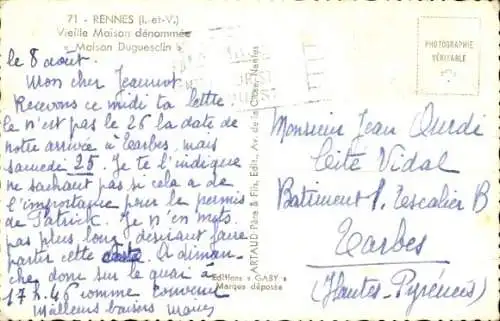 71 - RENNES (I.-et-V.)
Vieille Maison dénommée
« Maison Duguesclin »
le 8 août.
Mon cher Jeannot
Recevons ce midi ta lettre
Ce n'est pas le 26 la date de
notre arrivée à Tarbes, mais
samedi 25. Je te l'indique
ne sachant pas si cela a de
l'importance pour le permis
de Patrick. Je n'en mets
pas plus long désirant faire
partir cette carte. A diman-
che donc sur le quai à
17 h. 46 comme convenu
Meilleurs baisers
ARTAUD Père & Fils, Edit., Av. de la Close, Nantes
Editions « GABY »
Marque déposée
PHOTOGRAPHIE
VÉRITABLE
Monsieur Jean
Cité Vidal
Batiment 1. Escalier B
Tarbes
(Hautes-Pyrénées)